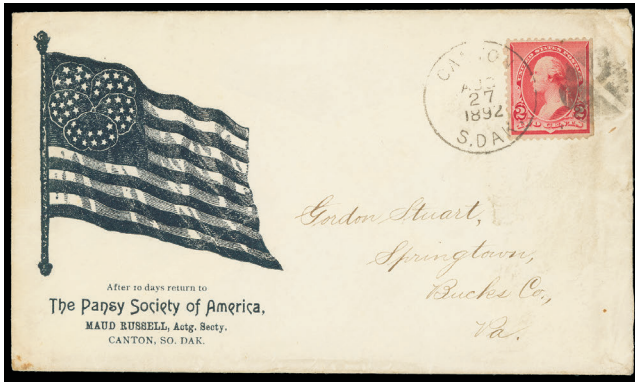 CANTON
AUG
27
1892
S.DAK
UNITED STATES POSTAGE
2 2
TWO CENTS
Gordon Stuart,
Springtown,
Bucks Co.,
Pa.
After 10 days return to
The Pansy Society of America,
MAUD RUSSELL, Actg. Secty.
CANTON, SO. DAK.